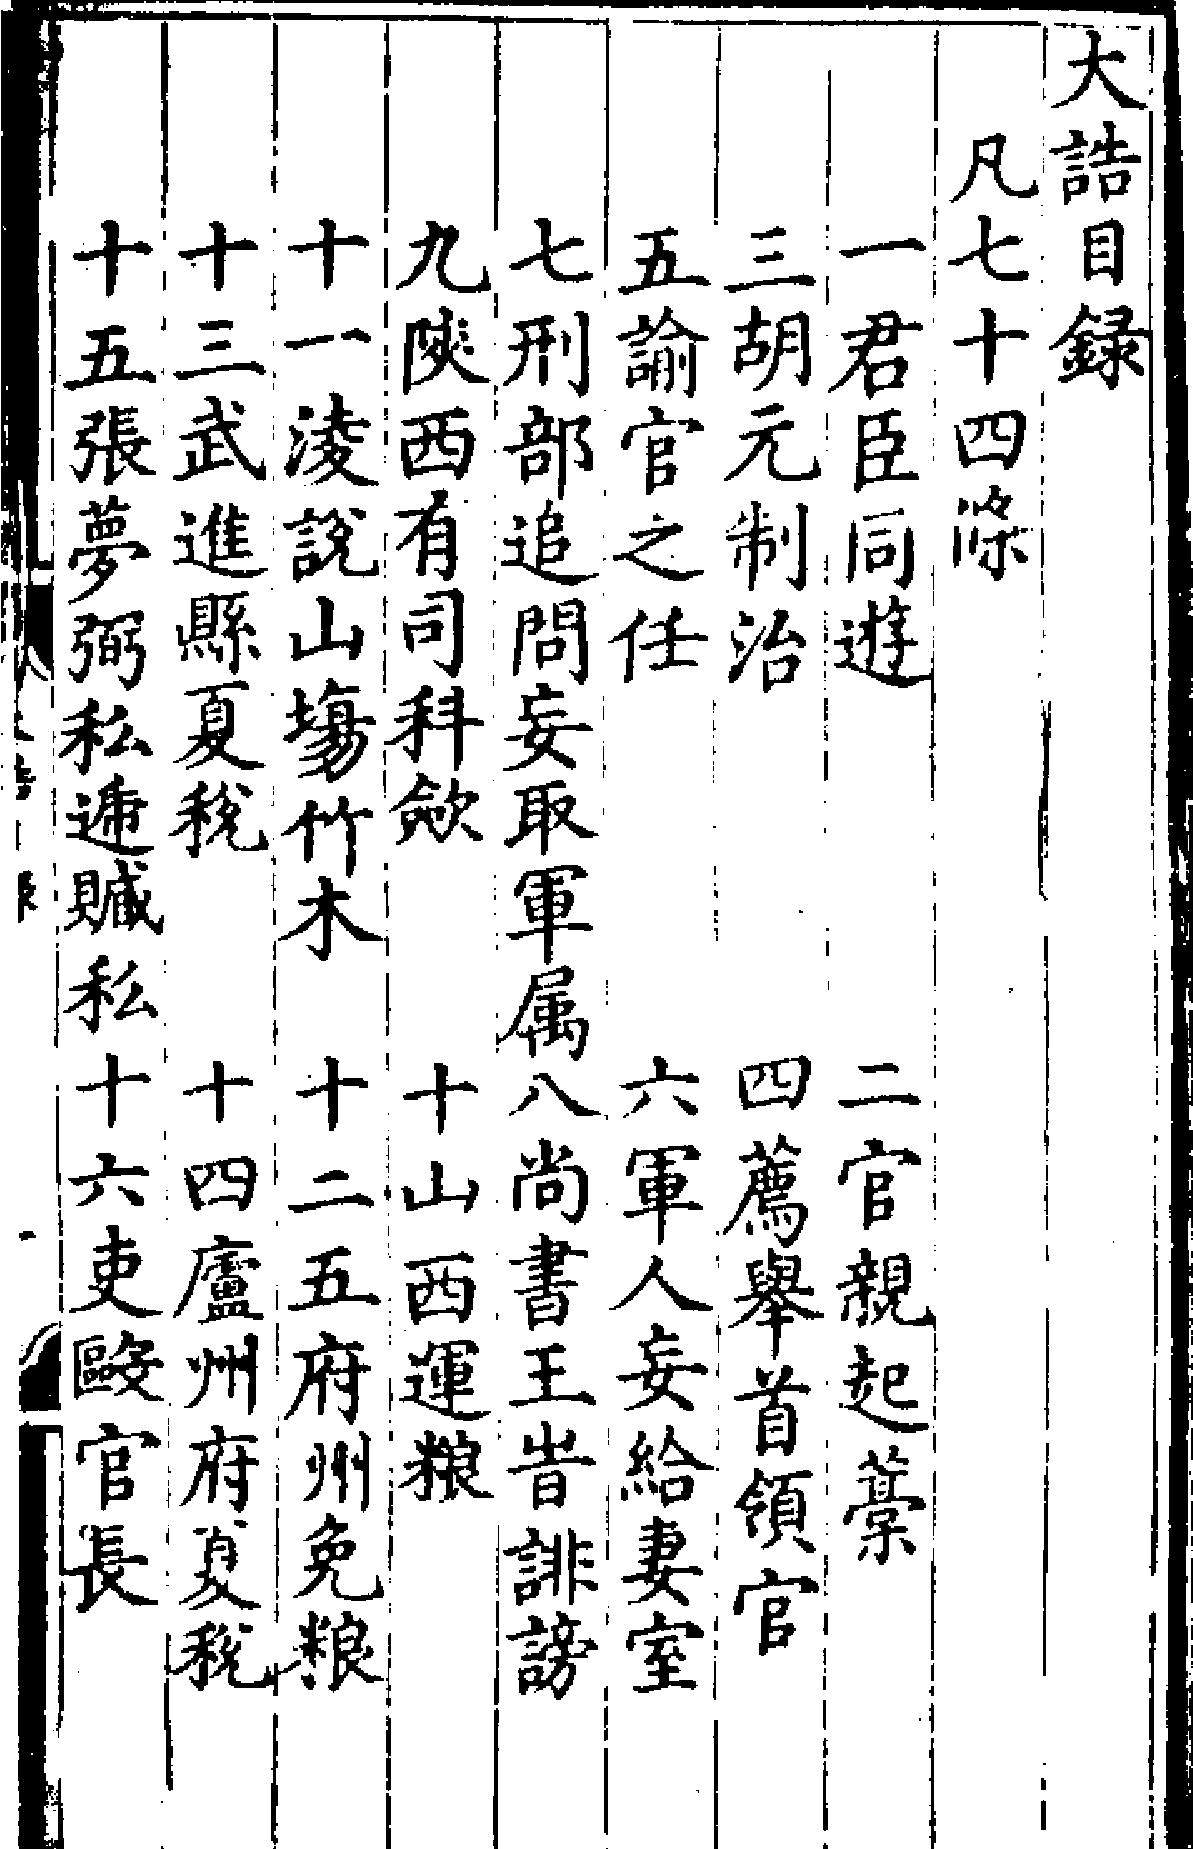 大誥目録
凡七十四條
一君臣同遊 二官親起藁
三胡元制治 四薦舉首領官
五諭官之任 六軍人妄給妻室
七刑部追問妄取軍属 八尚書王峕誹謗
九陝西有司科歛 十山西運粮
十一淩説山塲竹木 十二五府州免粮
十三武進縣夏税 十四廬州府夏税
十五張夢弼私逓贓私 十六吏毆官長